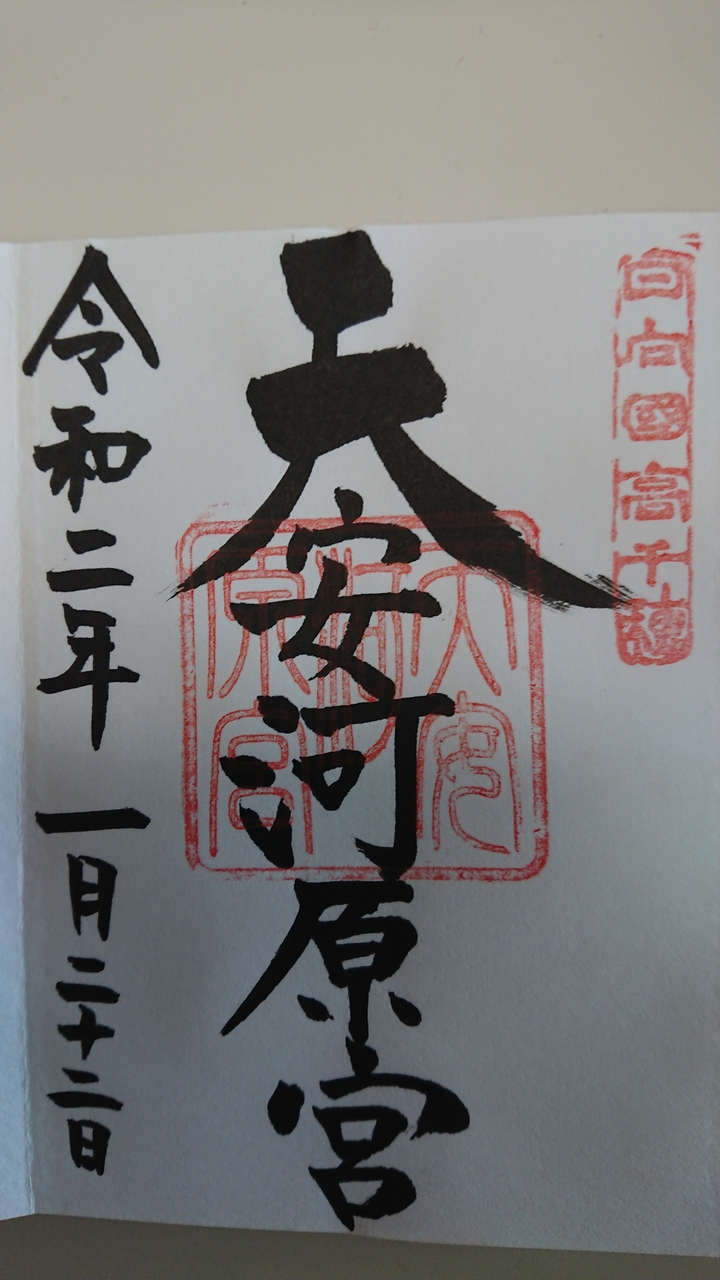 日向國高千穗
天安河原宮
天安
河
原宮
令和二年 一月二十二日